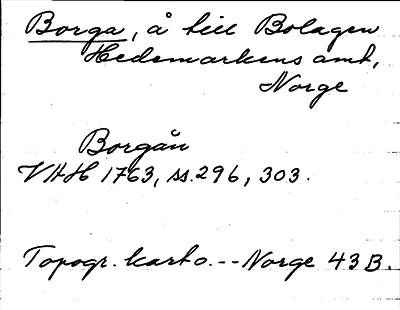 Borga, å till Bolagen
Hedemarkens amt,
Norge
Borgån
VHH 1763, ss. 296, 303.
Topogr. karta. -- Norge 43 B.